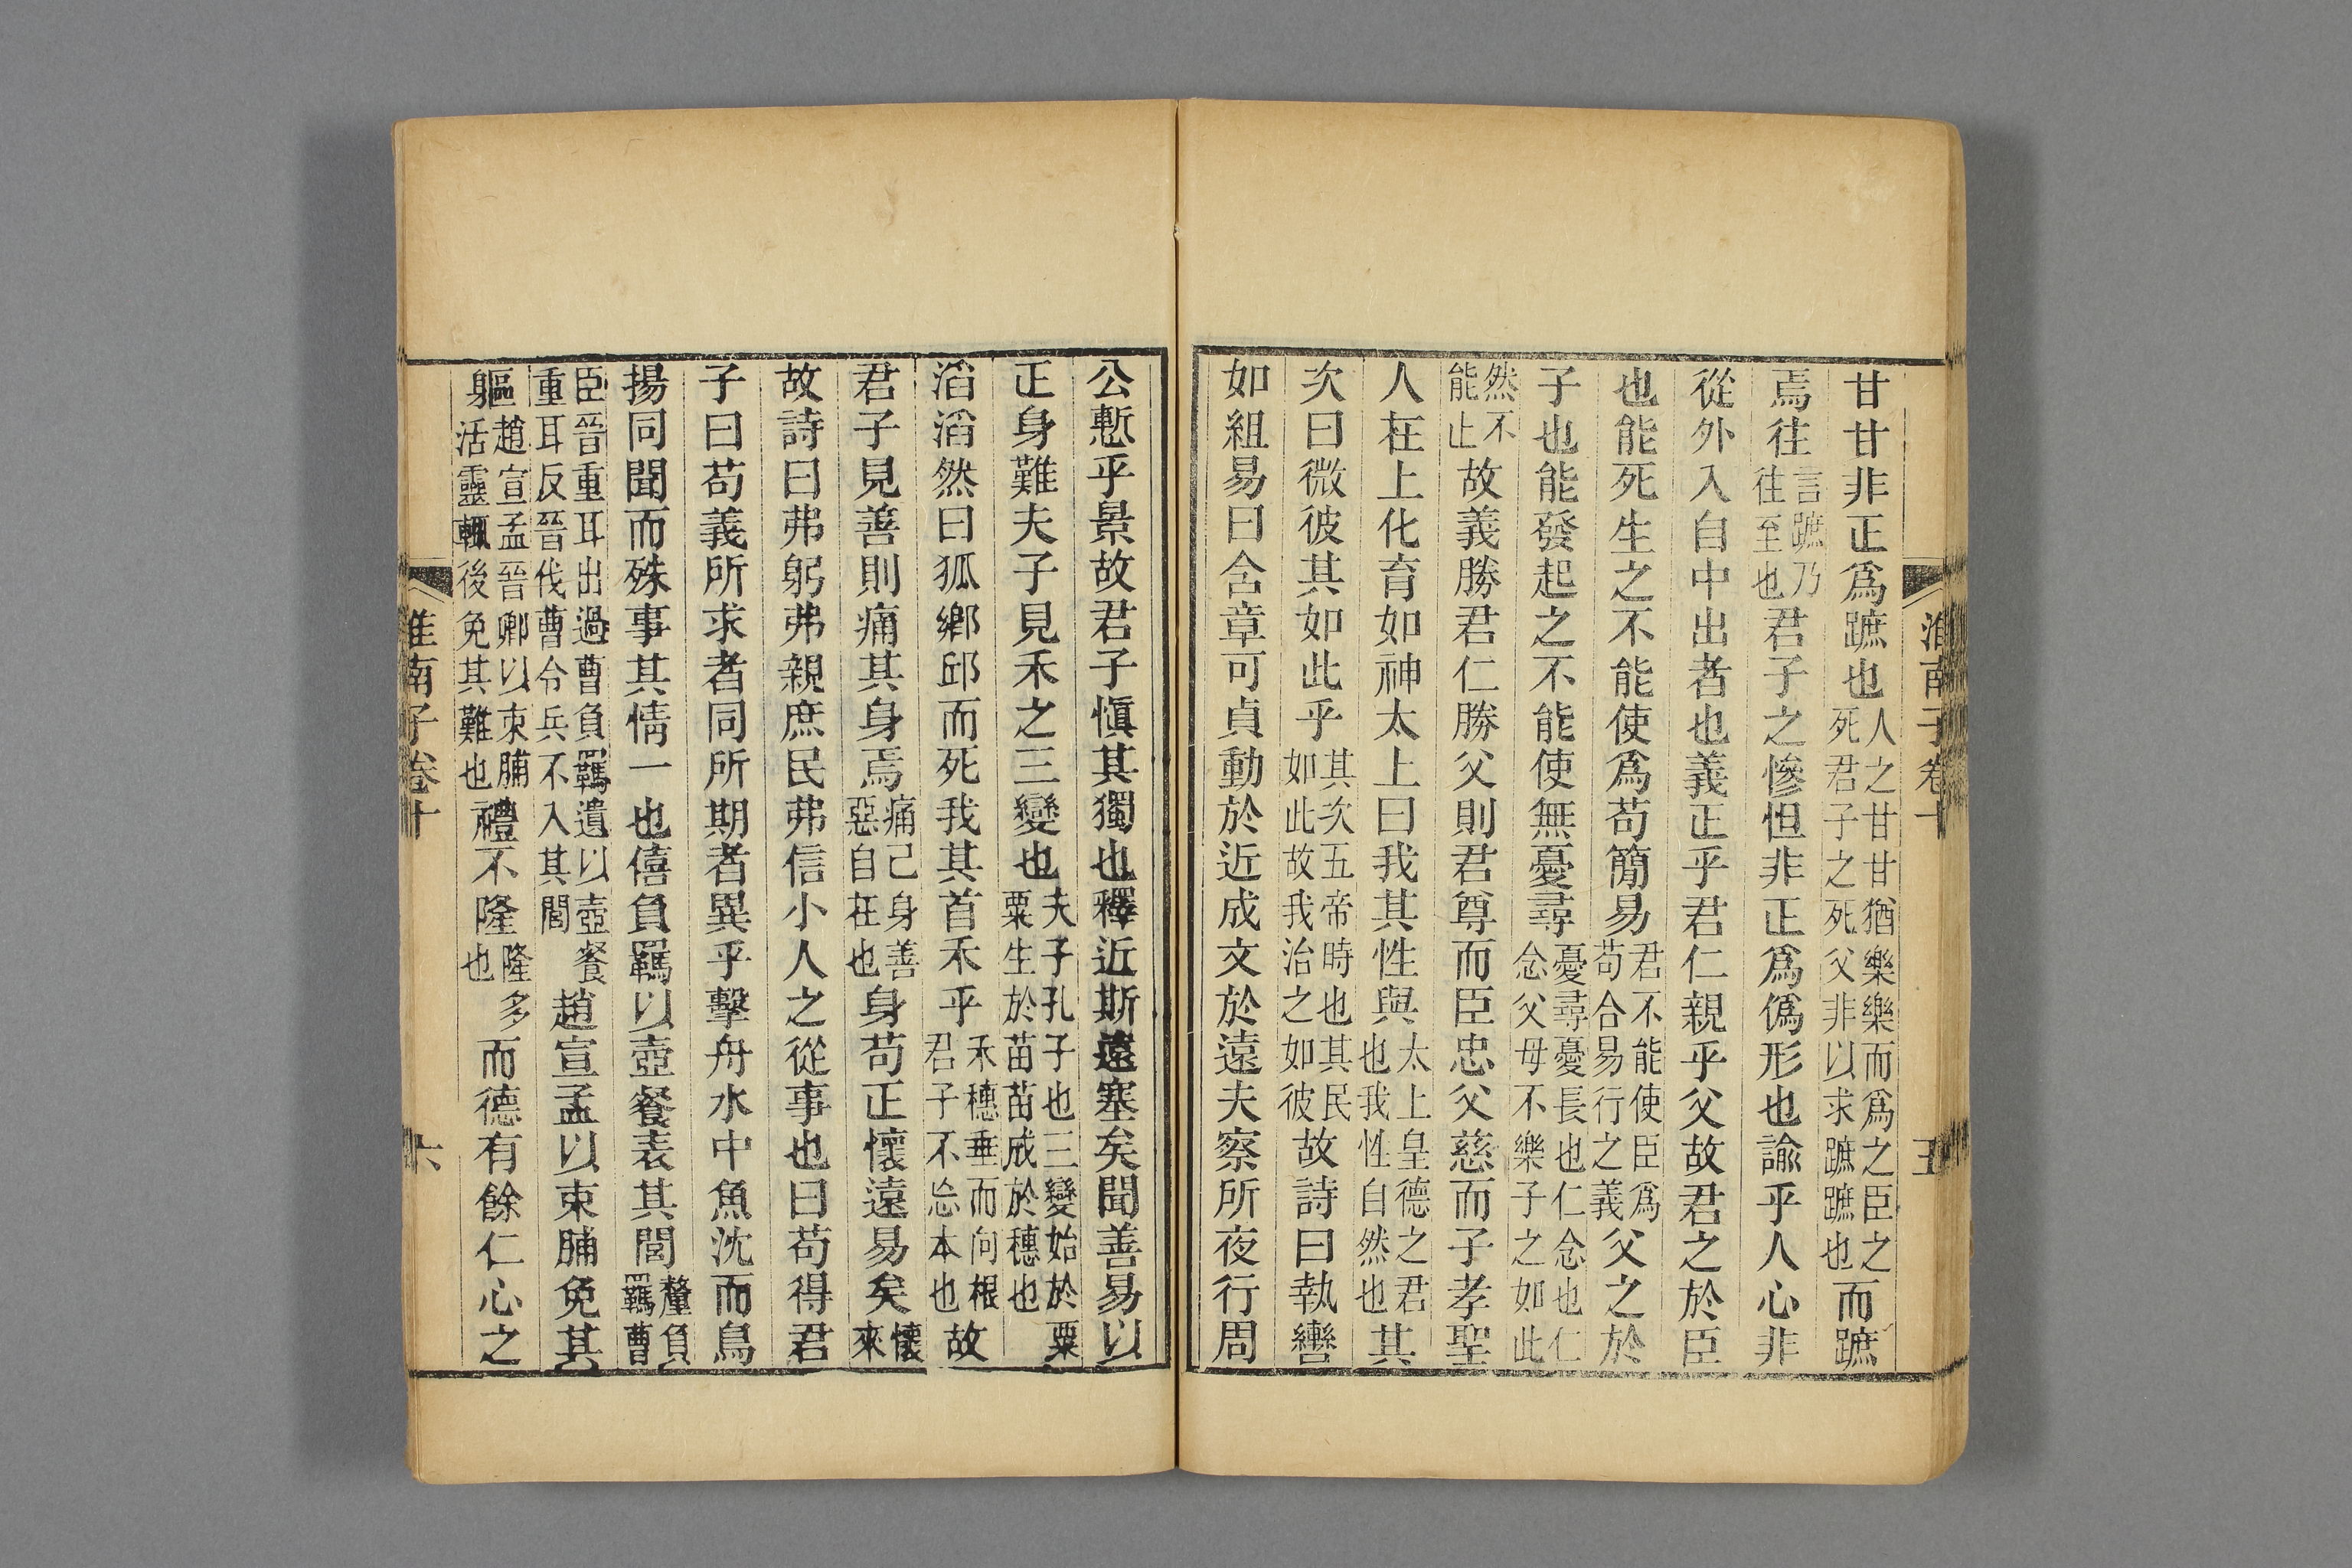 淮南子卷十 五
甘甘非正爲蹠也人之甘甘猶樂樂而爲之臣之死君子之死父非以求蹠蹠也而蹠
焉往言蹠乃往至也君子之慘怛非正爲僞形也諭乎人心非
從外入自中出者也義正乎君仁親乎父故君之於臣
也能死生之不能使爲苟簡易君不能使臣爲苟合易行之義父之於
子也能發起之不能使無憂尋憂尋憂長也仁念也仁念父母不樂子之如此
然不能止故義勝君仁勝父則君尊而臣忠父慈而子孝聖
人在上化育如神太上曰我其性與太上皇德之君也我性自然也其
次曰微彼其如此乎其次五帝時也其民如此故我治之如彼故詩曰執轡
如組易曰含章可貞動於近成文於遠夫察所夜行周
公慙乎景故君子愼其獨也釋近斯遠塞矣聞善易以
正身難夫子見禾之三變也夫子孔子也三變始於粟粟生於苗苗成於穗也
滔滔然曰狐鄉邱而死我其首禾乎禾穗垂而向根君子不忘本也故
君子見善則痛其身焉痛己身善惡自在也身苟正懷遠易矣懷來
故詩曰弗躬弗親庶民弗信小人之從事也曰苟得君
子曰苟義所求者同所期者異乎擊舟水中魚沈而鳥
揚同聞而殊事其情一也僖負羈以壺餐表其閭釐負羈曹
臣晉重耳出過曹負羈遺以壺餐重耳反晉伐曹令兵不入其閭趙宣孟以束脯免其
軀趙宣孟晉卿以束脯活靈輒後免其難也禮不隆隆多也而德有餘仁心之
淮南子卷十 六